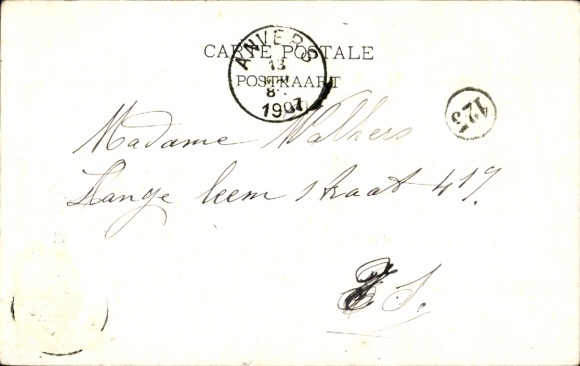 CARTE POSTALE
POSTKAART
ANVERS
13
8
1907
123
Madame Walkers
Lange leem straat 417